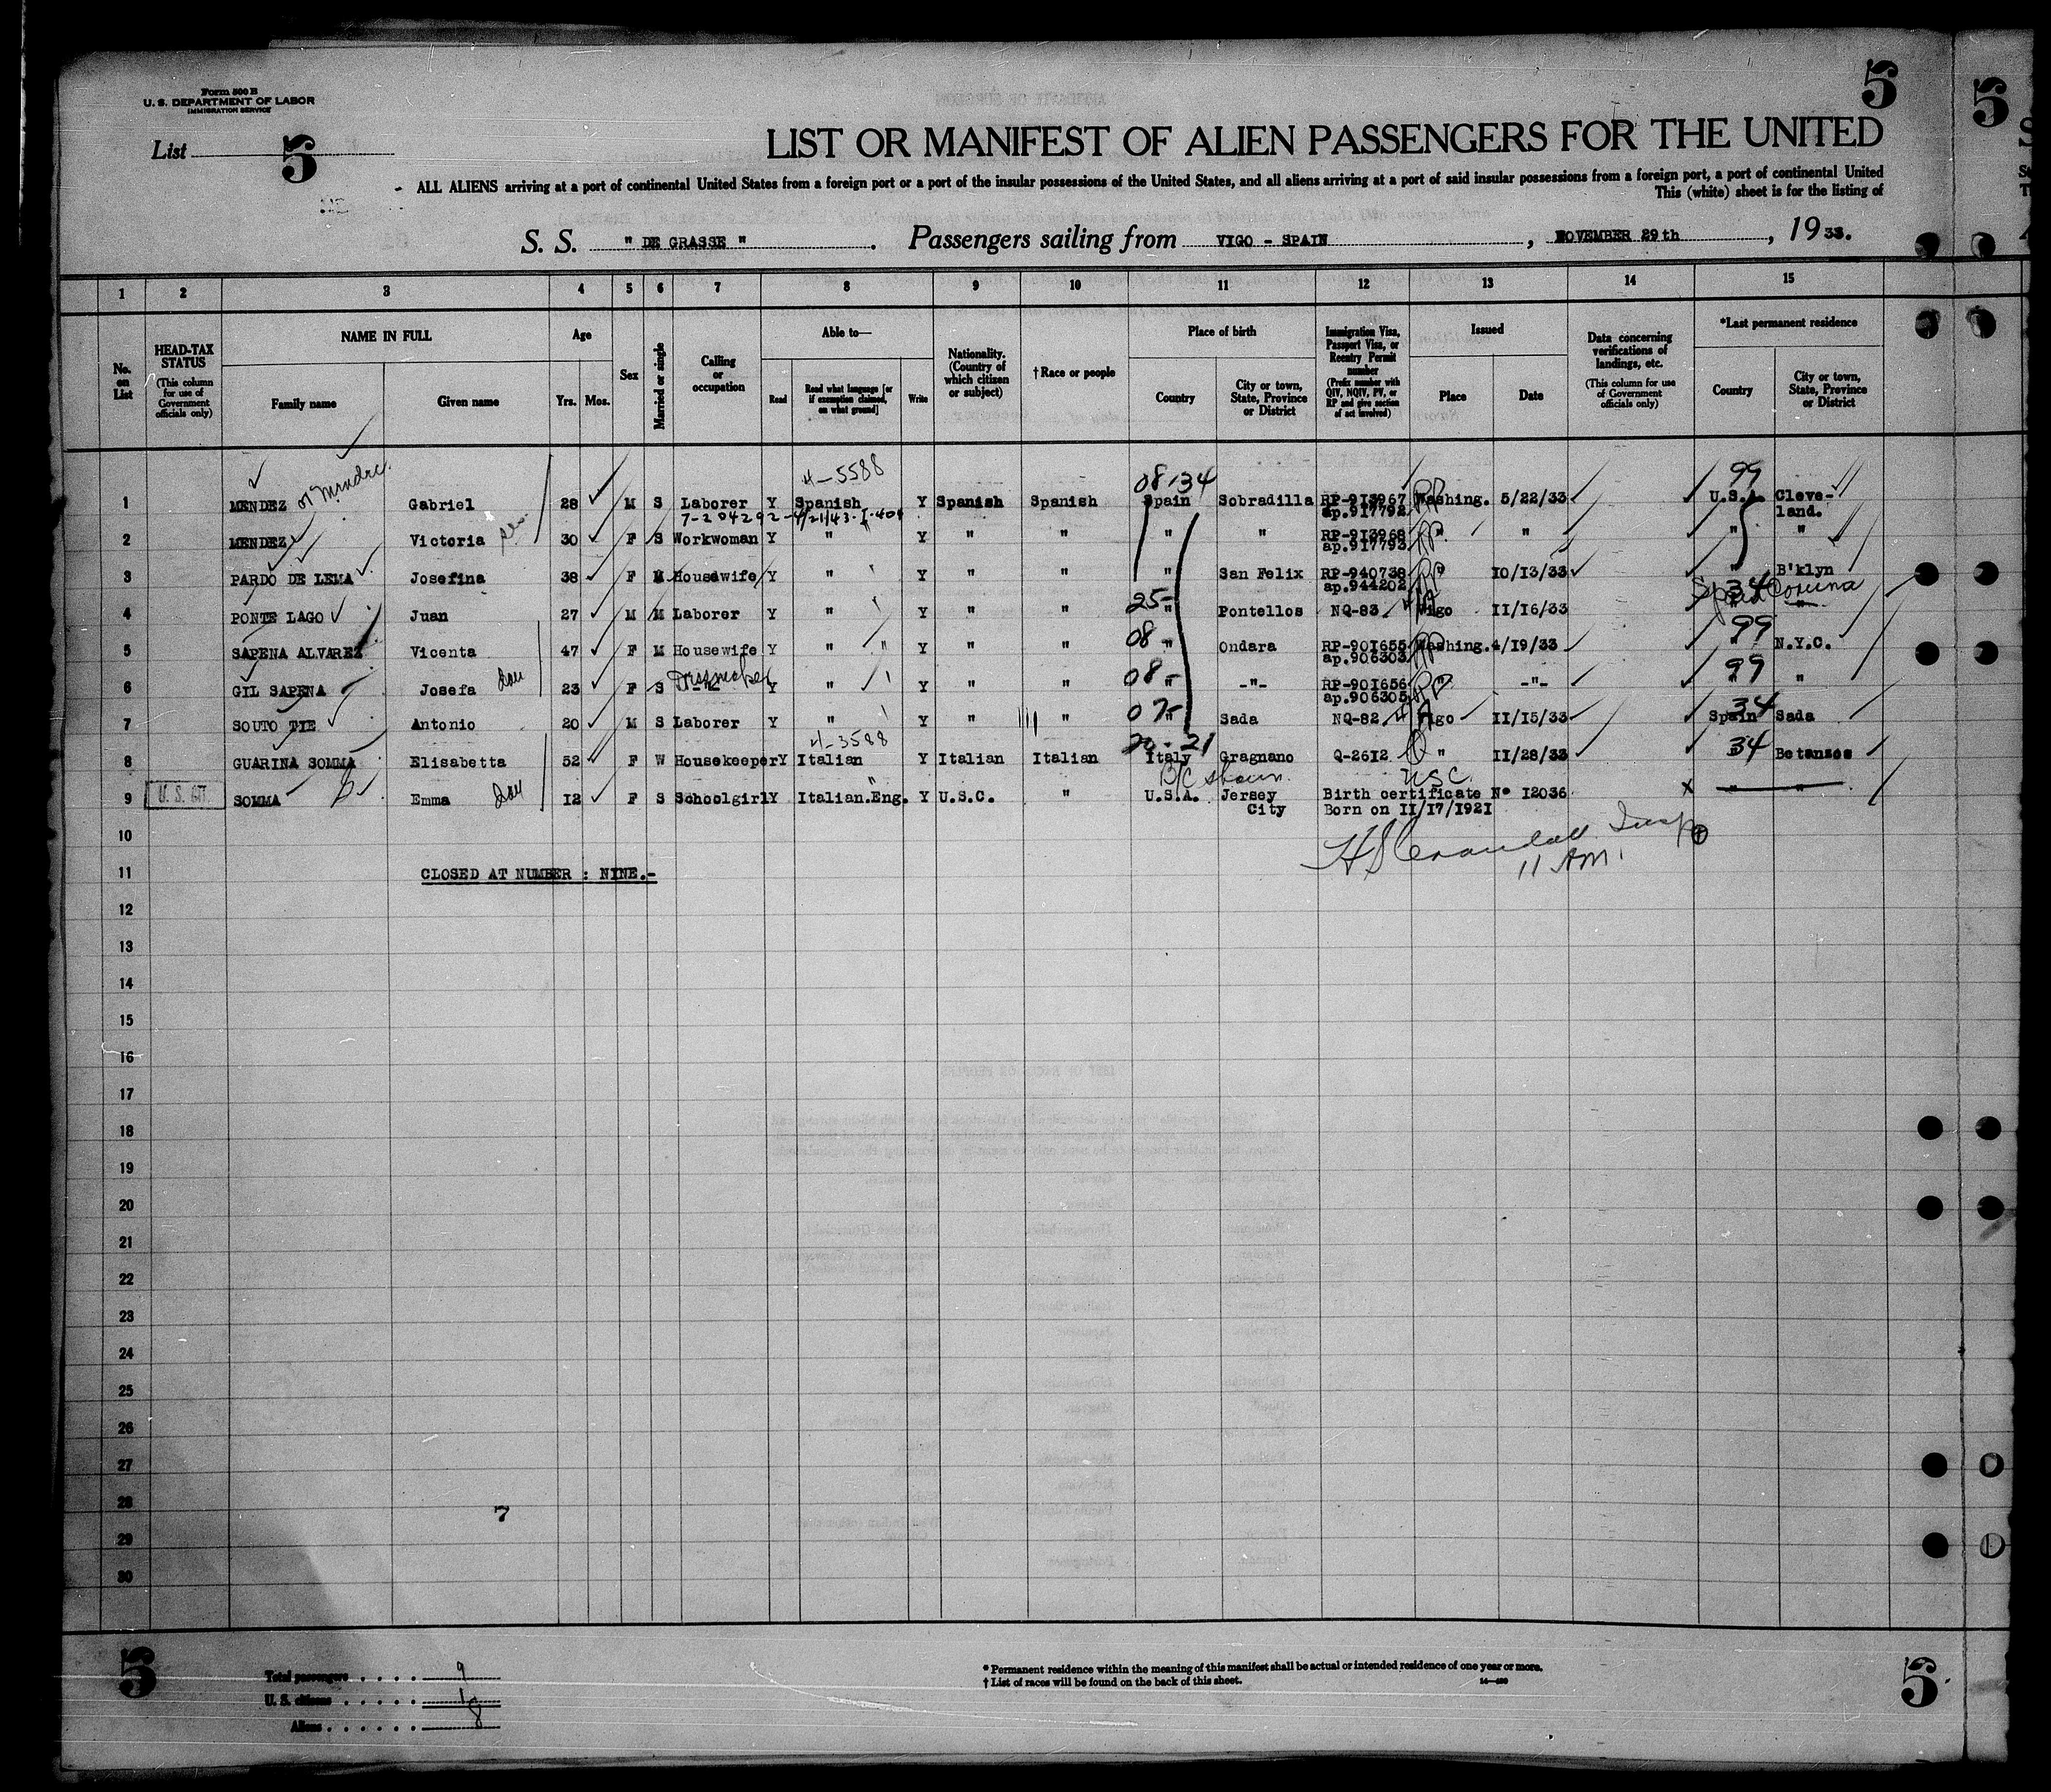 Form 500 B
U. S. DEPARTMENT OF LABOR
IMMIGRATION SERVICE
5
5
List 5
LIST OR MANIFEST OF ALIEN PASSENGERS FOR THE UNITED
ALL ALIENS arriving at a port of continental United States from a foreign port or a port of the insular possessions of the United States, and all aliens arriving at a port of said insular possessions from a foreign port, a port of continental United
This (white) sheet is for the listing of
S. S. " DE GRASSE " . Passengers sailing from VIGO - SPAIN , NOVEMBER 29th , 1933.
1 2 3 4 5 6 7 8 9 10 11 12 13 14 15
No. on List
HEAD-TAX STATUS (This column for use of Government officials only)
NAME IN FULL
Family name Given name
Age
Yrs. Mos.
Sex
Married or single
Calling or occupation
Able to—
Read Read what language [or if exemption claimed, on what ground] Write
Nationality. (Country of which citizen or subject)
†Race or people
Place of birth
Country City or town, State, Province or District
Immigration Visa, Passport Visa, or Reentry Permit number (Prefix number with QIV, NQIV, PV, or RP and give section of act involved)
Issued
Place Date
Data concerning verifications of landings, etc. (This column for use of Government officials only)
*Last permanent residence
Country City or town, State, Province or District
4-5588 08-34 99
1 MENDEZ or Mendre Gabriel 28 M S Laborer Y Spanish Y Spanish Spanish Spain Sobradilla RP-913967 Washing. 5/22/33 U.S.A. Cleve-
7-204292-4/21/43- ap.917792 land.
2 MENDEZ Victoria 30 F S Workwoman Y " Y " " " " RP-913968 " " " "
ap.917793
3 PARDO DE LEMA Josefina 38 F M Housewife Y " Y " " " San Felix RP-940738 " 10/13/33 " B'klyn
ap.944202 Spain Coruna
25- 34
4 PONTE LAGO Juan 27 M M Laborer Y " Y " " " Pontellos NQ-83 Vigo 11/16/33 " "
08 99
5 SAPENA ALVAREZ Vicenta 47 F M Housewife Y " " Y " " " Ondara RP-901655 Washing. 4/19/33 N.Y.C.
ap.906303
Dressmaker 08- 99
6 GIL SAPENA Josefa dau 23 F S Y " Y " " " -"- RP-901656 " -"- "
ap.906305
07- 34
7 SOUTO TIE Antonio 20 M S Laborer Y " Y " " " Sada NQ-82 Vigo 11/15/33 Spain Sada
4-3588 20-21 34
8 GUARINA SOMMA Elisabetta 52 F W Housekeeper Y Italian Y Italian Italian Italy Gragnano Q-2612 " 11/28/33 Betanzos
B/C shown. USC
9 U. S. CIT. SOMMA Emma dau 12 F S Schoolgirl Y Italian.Eng. Y U.S.C. " U.S.A. Jersey City Birth certificate Nº 12036 " "
Born on 11/17/1921
10
H S Crandall Insp
11 AM
11 CLOSED AT NUMBER : NINE.-
12
13
14
15
16
17
18
19
20
21
22
23
24
25
26
27
28
7
29
30
5
Total passengers . . . . . 9
U. S. citizens . . . . . 1
Aliens . . . . . . 8
* Permanent residence within the meaning of this manifest shall be actual or intended residence of one year or more.
† List of races will be found on the back of this sheet.
5